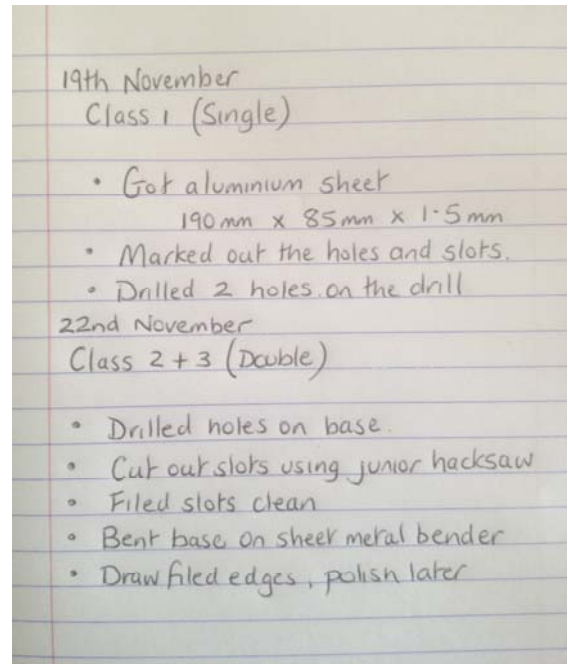 19th November
Class 1 (Single)
• Got aluminium sheet
190 mm x 85 mm x 1·5 mm
• Marked out the holes and slots.
• Drilled 2 holes on the drill
22nd November
Class 2 + 3 (Double)
• Drilled holes on base.
• Cut out slots using junior hacksaw
• Filed slots clean
• Bent base on sheet metal bender
• Draw filed edges, polish later